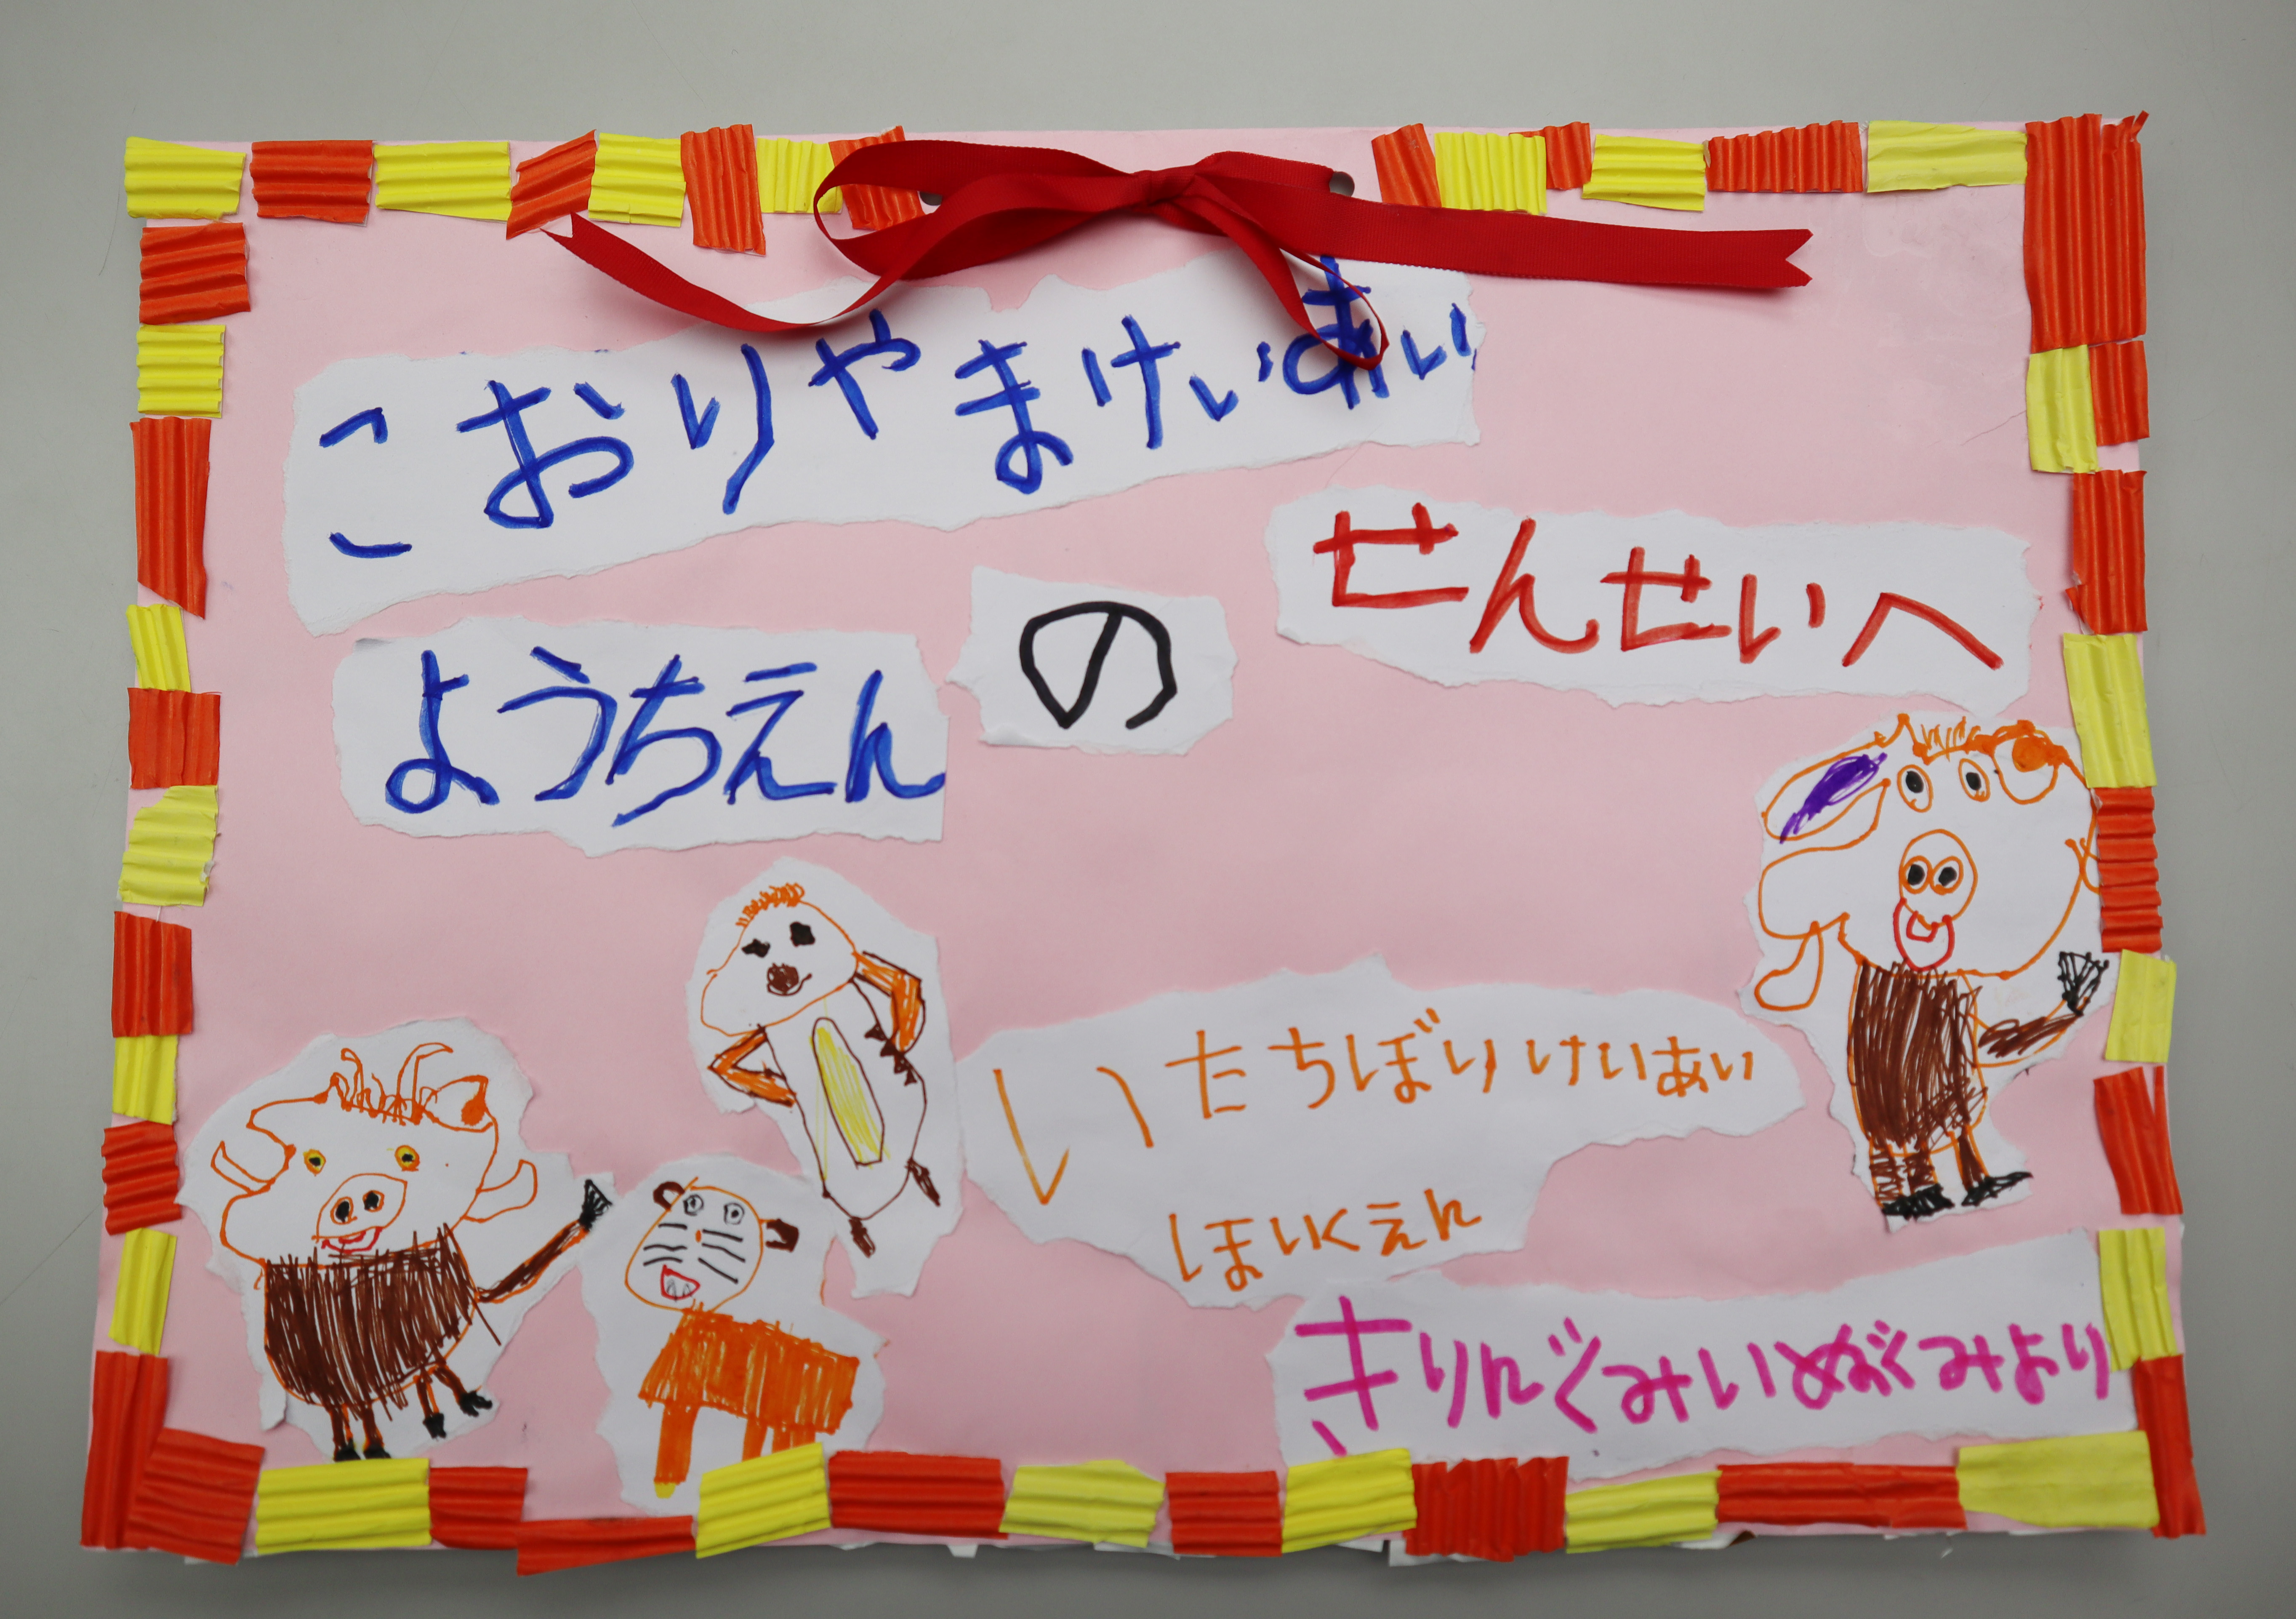 こおりやまけいあい
ようちえん
の
せんせいへ
いたちぼりけいあい
ほいくえん
きりんぐみいぬぐみより